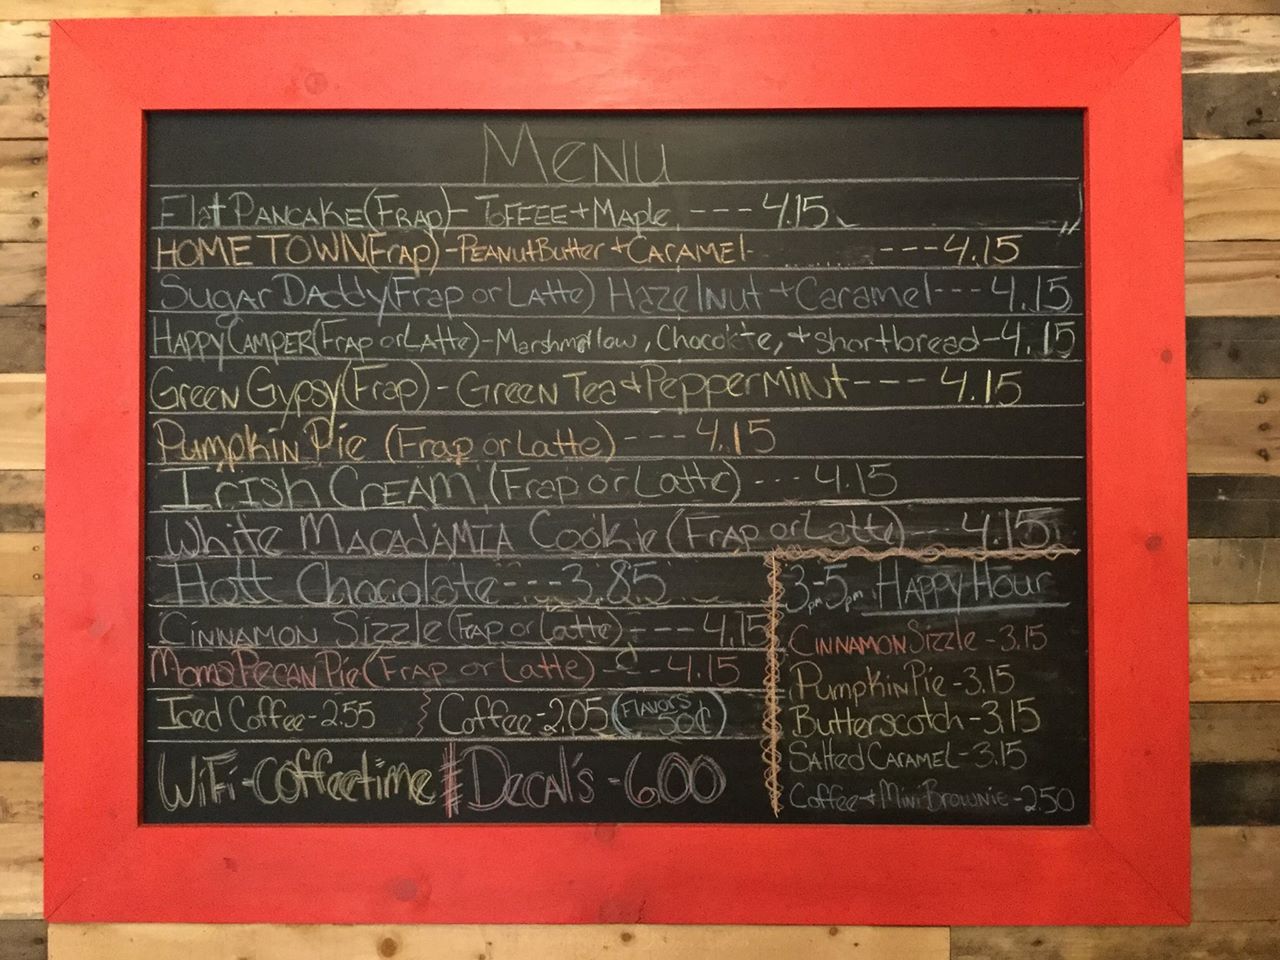 Menu
Flat Pancake (Frap) - Toffee + Maple --- 4.15
Home Town (Frap) - Peanut Butter + Caramel --- 4.15
Sugar Daddy (Frap or Latte) Hazelnut + Caramel --- 4.15
Happy Camper (Frap or Latte) - Marshmallow, Chocolate, + shortbread - 4.15
Green Gypsy (Frap) - Green Tea & Peppermint ---- 4.15
Pumpkin Pie (Frap or Latte) --- 4.15
Irish Cream (Frap or Latte) --- 4.15
White Macadamia Cookie (Frap or Latte) --- 4.15
Hott Chocolate --- 3.85
Cinnamon Sizzle (Frap or Latte) --- 4.15
Moms Pecan Pie (Frap or Latte) --- 4.15
Iced Coffee - 2.55 Coffee - 2.05 (Flavors 50¢)
WiFi - Coffeetime Decal's - 6.00
3pm-5pm Happy Hour
Cinnamon Sizzle - 3.15
Pumpkin Pie - 3.15
Butterscotch - 3.15
Salted Caramel - 3.15
Coffee + Mini Brownie - 2.50